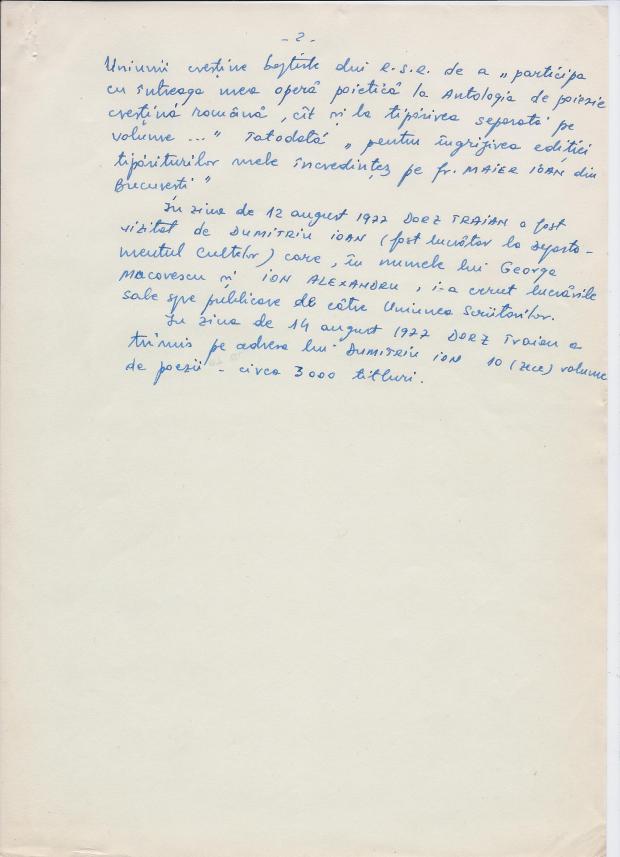 - 2 -
Uniunii creștine baptiste din R.S.R. de a „participa
cu întreaga mea operă poietică la Antologia de poiezie
creștină română, cît și la tipărirea separată pe
volume ..." Totodată „pentru îngrijirea ediției
tipăriturilor mele încredințez pe fr. MAIER IOAN din
București"
În ziua de 12 august 1977 DORZ TRAIAN a fost
vizitat de DUMITRIU IOAN (fost lucrător la Departa-
mentul Cultelor) care, în numele lui George
MACOVESCU și ION ALEXANDRU, i-a cerut lucrările
sale spre publicare de către Uniunea Scriitorilor.
În ziua de 14 august 1977 DORZ Traian a
trimis pe adresa lui DUMITRIU ION 10 (zece) volume
de poezii - circa 3000 titluri.